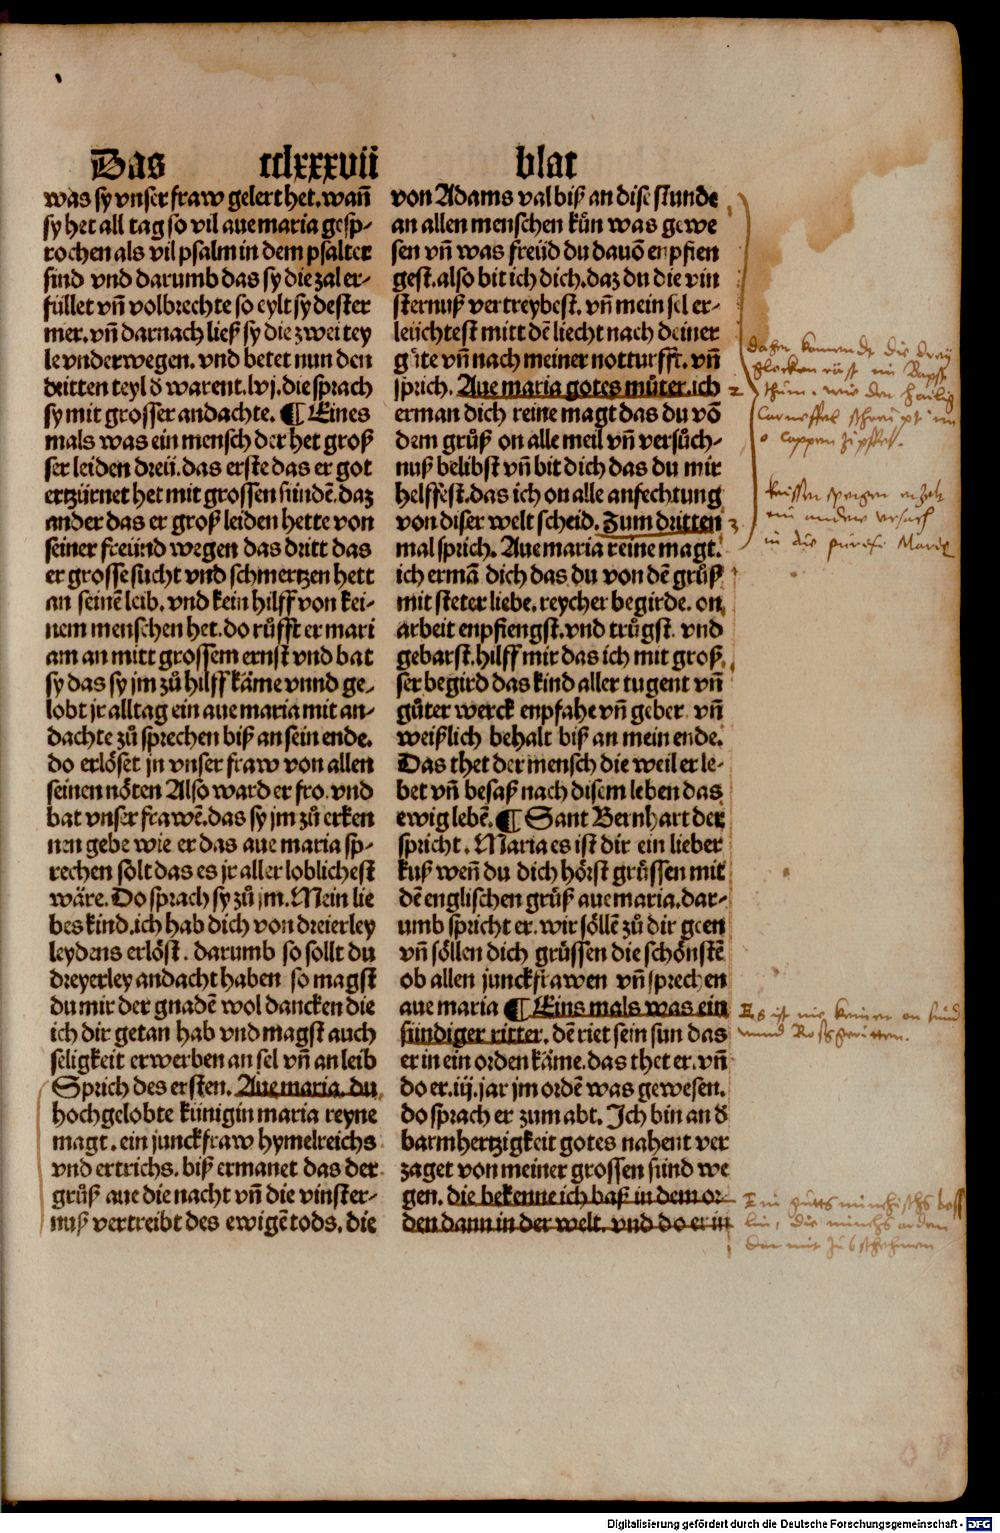 Das cclxxxvii blat
was sy vnser fraw gelert het. wañ
sy het all tag so vil aue maria gesp-
rochen als vil psalm in dem psalter
sind vnd darumb das sy die zal er-
füllet vñ volbrechte so eylt sy dester
mer. vñ darnach ließ sy die zwei tey
le vnderwegen. vnd betet nun den
dritten teyl d̕ warent. lvj. die sprach
sy mit grosser andachte. ¶ Eines
mals was ein mensch der het groß
ser leiden dreü. das erste das er got
ertzürnet het mit grossen sündē. daz
ander das er groß leiden hette von
seiner freünd wegen das dritt das
er grosse sucht vnd schmertzen hett
an seinē leib. vnd kein hilff von kei-
nem menschen het. do růfft er mari
am an mitt grossem ernst vnd bat
sy das sy jm zů hilff käme vnnd ge-
lobt jr alltag ein aue maria mit an-
dachte zů sprechen biß an sein ende.
do erlöset jn vnser fraw von allen
seinen nöten Also ward er fro. vnd
bat vnser frawē. das sy jm zů erken
nen gebe wie er das aue maria sp-
rechen solt das es jr aller loblichest
wäre. Do sprach sy zů jm. Mein lie
bes kind. ich hab dich von dreierley
leydens erlöst. darumb so sollt du
dreyerley andacht haben so magst
du mir der gnadē wol dancken die
ich dir getan hab vnd magst auch
seligkeit erwerben an sel vñ an leib
Sprich des ersten. Aue maria. du
hochgelobte künigin maria reyne
magt. ein junckfraw hymelreichs
vnd ertrichs. biß ermanet das der
grůß aue die nacht vñ die vinster-
nuß vertreibt des ewigē tods. die
von Adams val biß an dise stunde
an allen menschen kün was gewe
sen vñ was freüd du dauō enpfien
gest. also bit ich dich. daz du die vin
sternuß vertreybest. vñ mein sel er-
leüchtest mitt dē liecht nach deiner
gůte vñ nach meiner notturfft. vñ
sprich. Aue maria gotes můter. ich
erman dich reine magt das du vō
dem grůß on alle meil vñ versůch-
nuß belibst vñ bit dich das du mir
helffest. das ich on alle anfechtung
von diser welt scheid. Zum dritten
mal sprich. Aue maria reine magt.
ich ermā dich das du von dē grůß
mit steter liebe. reycher begirde. on
arbeit enpfiengst. vnd trůgst. vnd
gebarst. hilff mir das ich mit groß
ser begird das kind aller tugent vñ
gůter werck enpfahe vñ geber. vñ
weißlich behalt biß an mein ende.
Das thet der mensch die weil er le-
bet vñ besaß nach disem leben das
ewig lebē. ¶ Sant Bernhart der
spricht. Maria es ist dir ein lieber
kuß wen̄ du dich hörst grüssen mit
dē englischen grůß aue maria. dar-
umb spricht er. wir söllē zů dir geen
vñ söllen dich grüssen die schönstē
ob allen junckfrawen vñ sprechen
aue maria ¶ Eins mals was ein
sündiger ritter. dē riet sein sun das
er in ein orden käme. das thet er. vñ
do er. iij. jar jm ordē was gewesen.
do sprach er zum abt. Ich bin an d̕
barmhertzigkeit gotes nahent ver
zaget von meiner grossen sünd we
gen. die bekenne ich baß in dem or-
den dann in der welt. vnd do er in
2
3
Digitalisierung gefördert durch die Deutsche Forschungsgemeinschaft - DFG